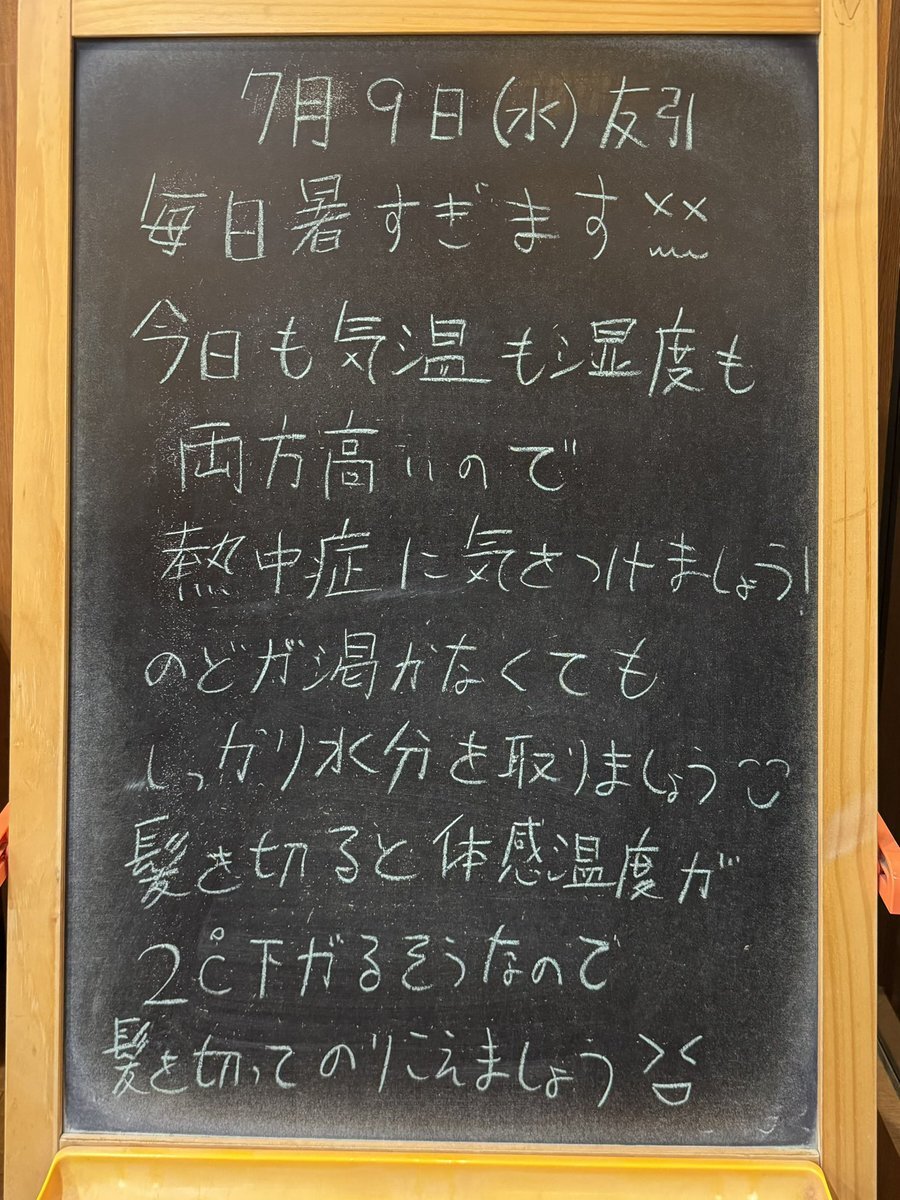 7月9日(水)友引
毎日暑すぎます
今日も気温も湿度も
両方高いので
熱中症に気をつけましょう!
のどが渇かなくても
しっかり水分を取りましょう
髪を切ると体感温度が
2℃下がるそうなので
髪を切ってのりこえましょう